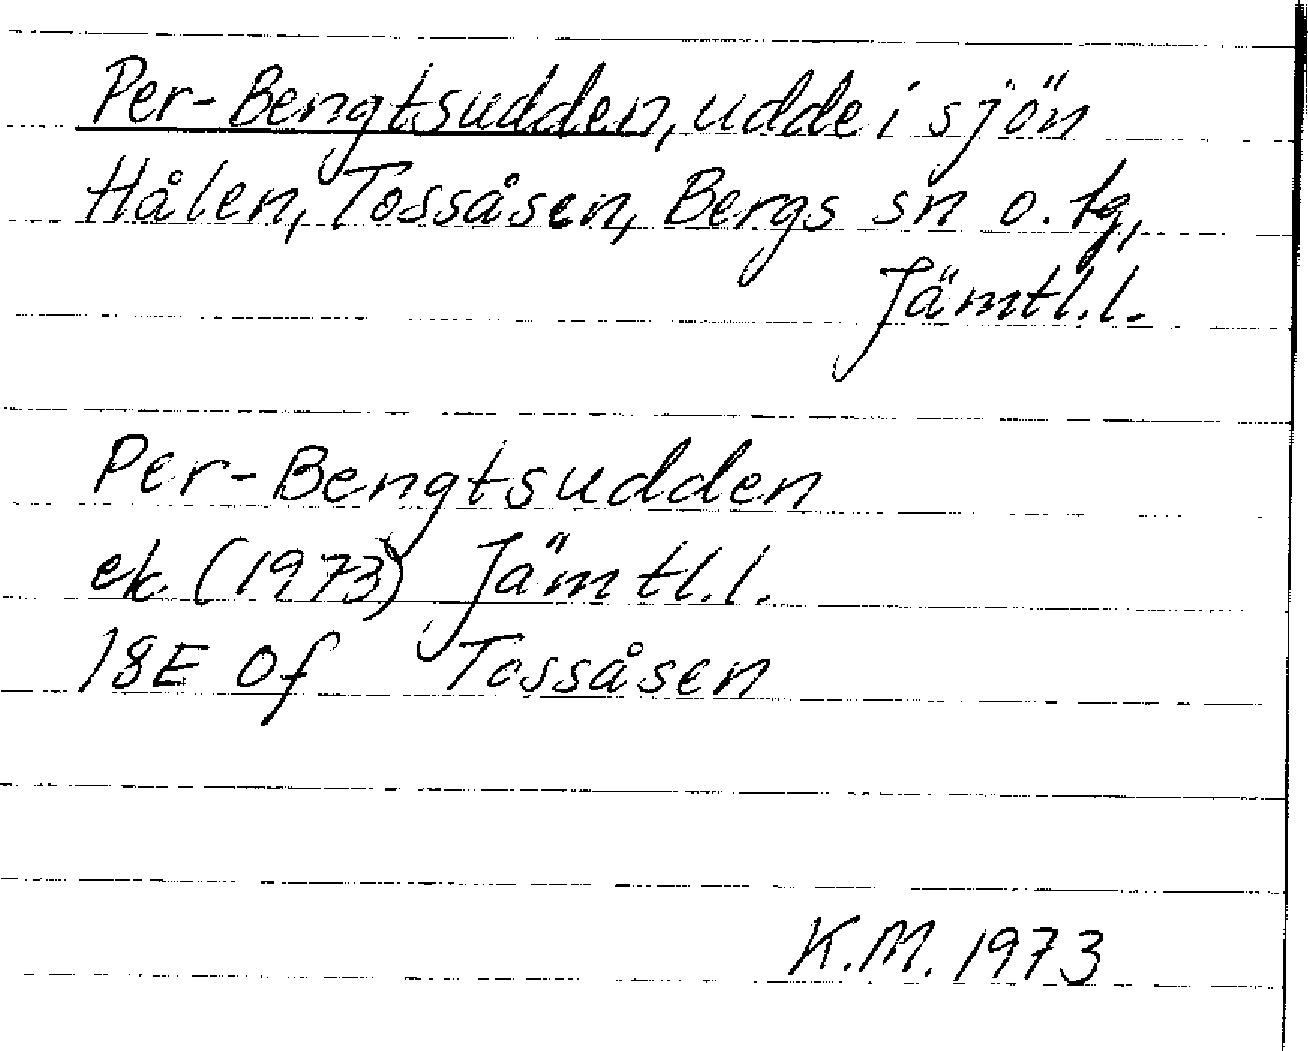 Per-Bengtsudden, udde i sjön
Hålen, Tossåsen, Bergs sn o. tg,
Jämtl.l.
Per-Bengtsudden
ek. (1973) Jämtl.l.
18E 0f Tossåsen
K.M. 1973